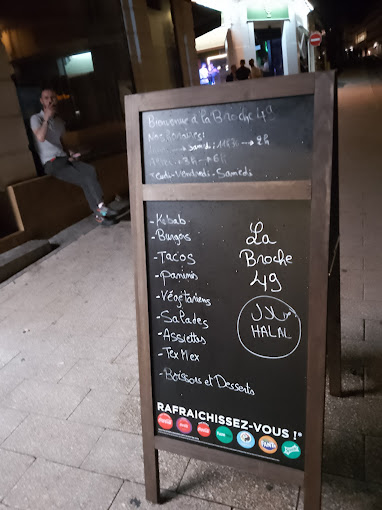 Bienvenue à la Broche 49
Nos horaires!
→ Samedi: 11h30 → 2h
→ 6h
Jeudi-Vendredi-Samedi
-Kebab
-Burgers
-Tacos
-paninis
-Végétariens
-Salades
-Assiettes
-Tex Mex
-Boissons et Desserts
La
Broche
49
حلال
HALAL
RAFRAICHISSEZ-VOUS !*